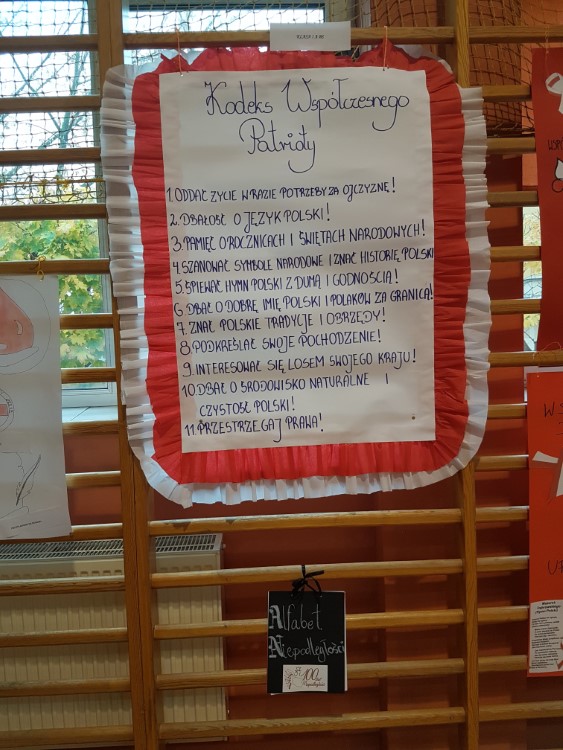 Kodeks Współczesnego
Patrioty
1. ODDAĆ ŻYCIE W RAZIE POTRZEBY ZA OJCZYZNĘ!
2. DBAŁOŚĆ O JĘZYK POLSKI!
3. PAMIĘĆ O ROCZNICACH I ŚWIĘTACH NARODOWYCH!
4. SZANOWAĆ SYMBOLE NARODOWE I ZNAĆ HISTORIĘ POLSKI
5. ŚPIEWAĆ HYMN POLSKI Z DUMĄ I GODNOŚCIĄ!
6. DBAĆ O DOBRE IMIĘ POLSKI I POLAKÓW ZA GRANICĄ!
7. ZNAĆ POLSKIE TRADYCJE I OBRZĘDY!
8. PODKREŚLAĆ SWOJE POCHODZENIE!
9. INTERESOWAĆ SIĘ LOSEM SWOJEGO KRAJU!
10. DBAĆ O ŚRODOWISKO NATURALNE I
CZYSTOŚĆ POLSKI!
11. PRZESTRZEGAJ PRAWA!
Alfabet
Niepodległości
100